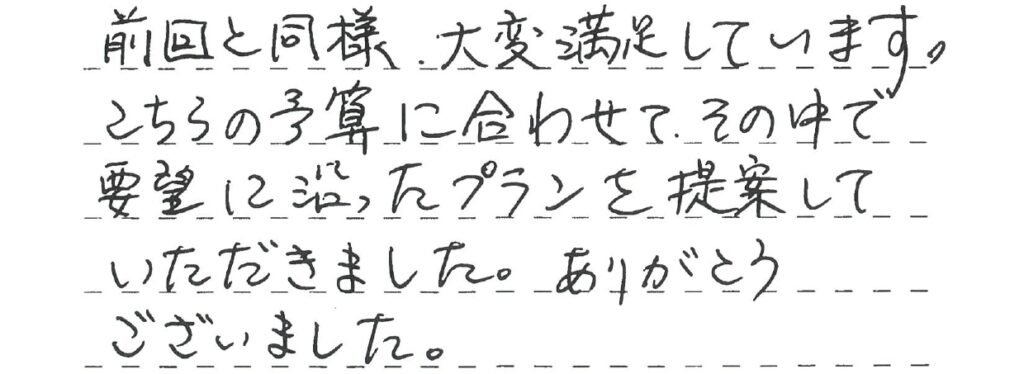 前回と同様、大変満足しています。
こちらの予算に合わせて、その中で
要望に沿ったプランを提案して
いただきました。ありがとう
ございました。